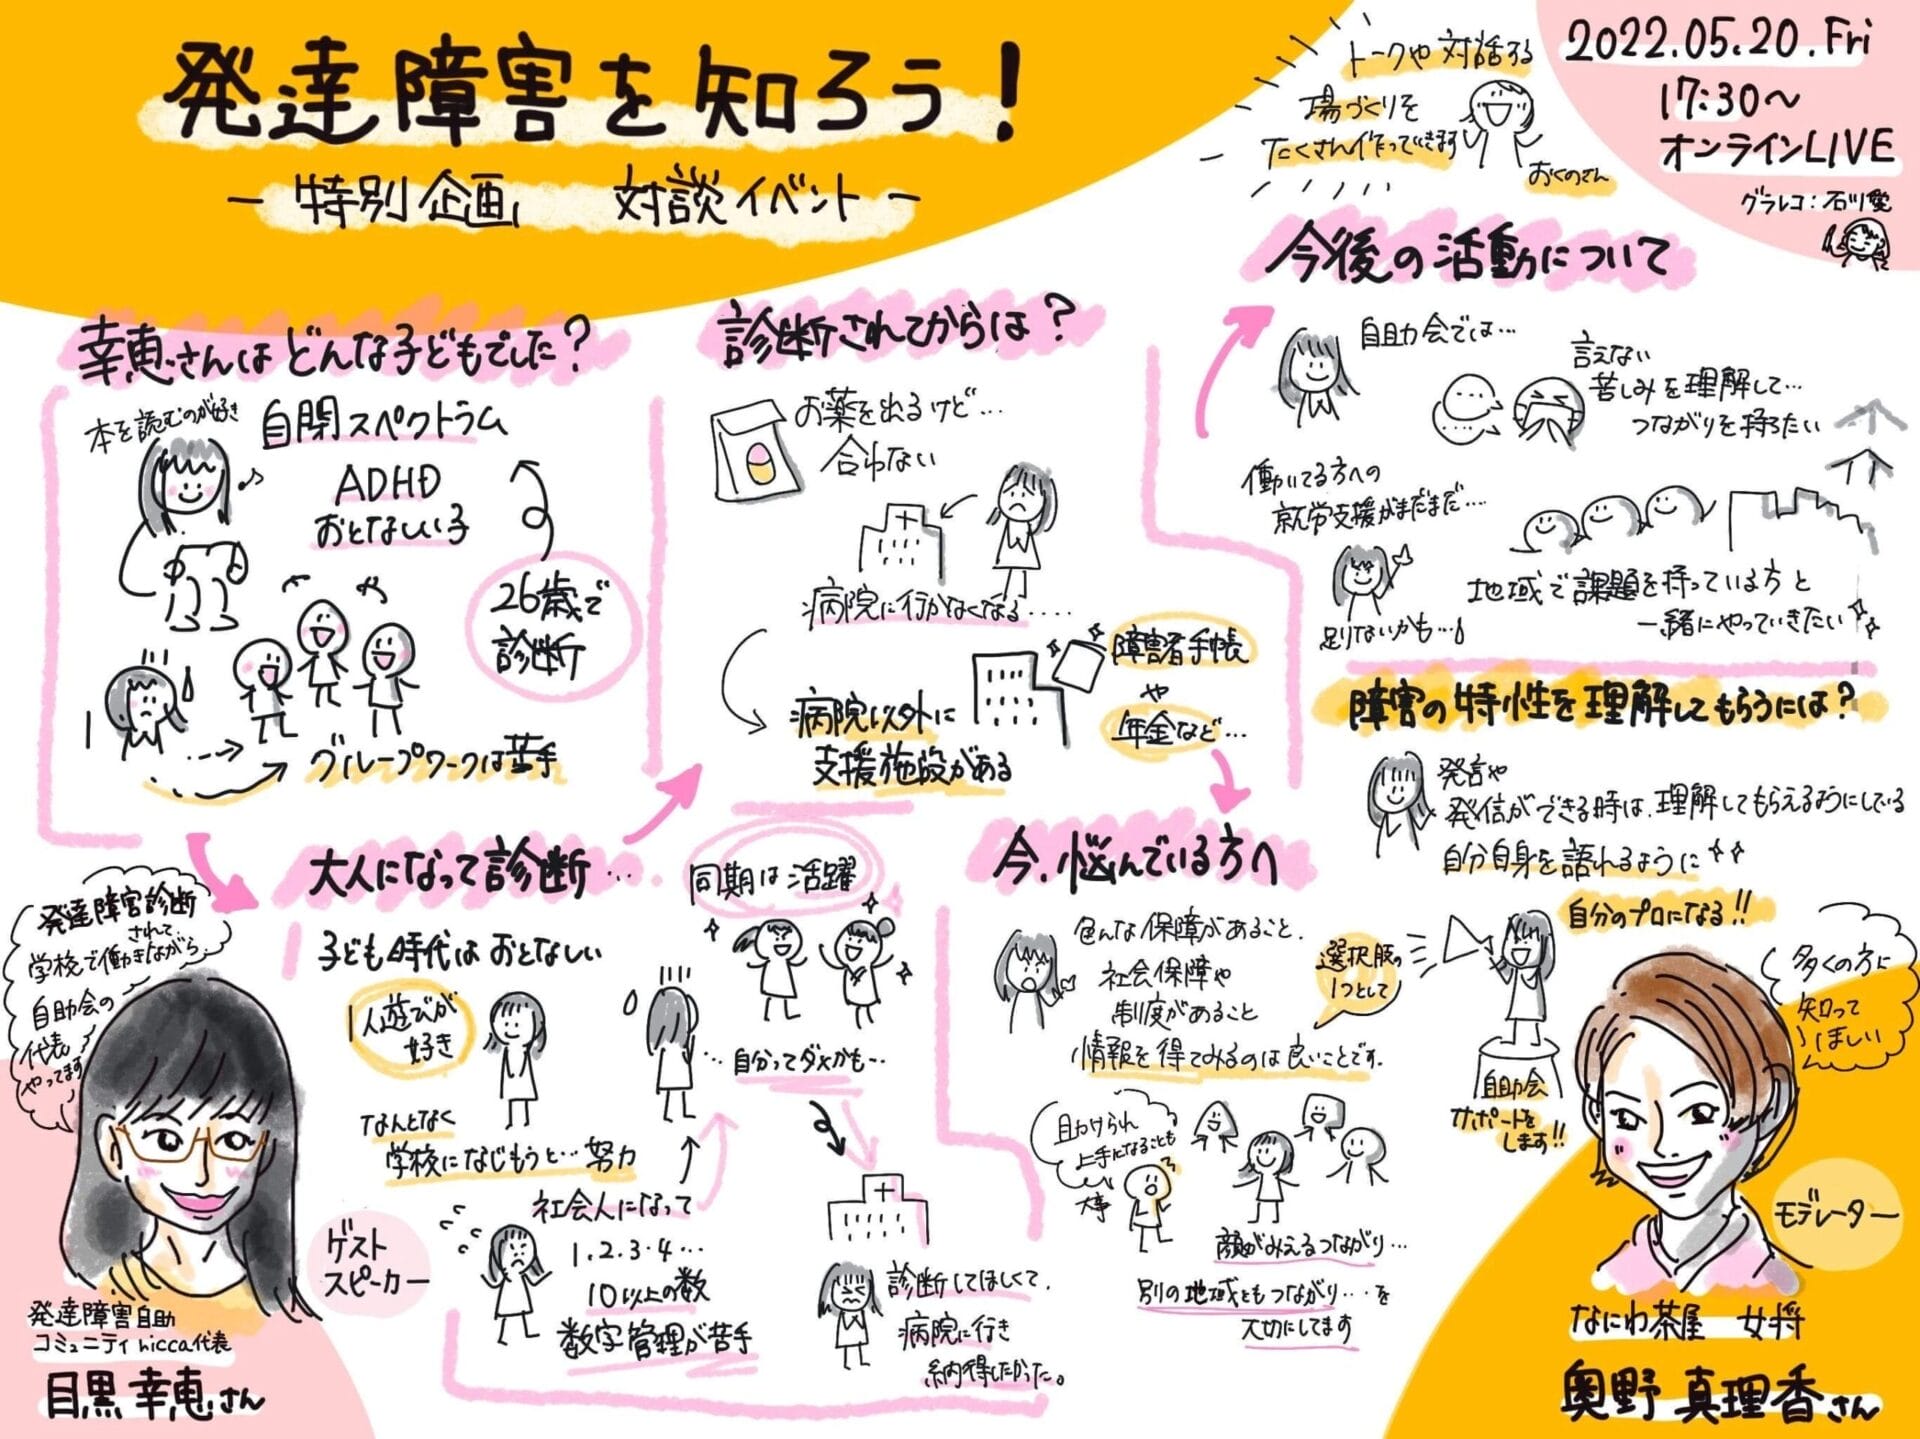 発達障害を知ろう！
－特別企画 対談イベント－
2022.05.20.Fri
17:30〜
オンラインLIVE
グラレコ：石川愛
トークや対話する
場づくりを
たくさん作っていきます
おくのさん
幸恵さんはどんな子どもでした？
本を読むのが好き
自閉スペクトラム
ADHD
おとなしい子
26歳で
診断
グループワークは苦手
発達障害診断
されて、
学校で働きながら
自助会の
代表
やってます
ゲスト
スピーカー
発達障害自助
コミュニティnicca代表
目黒 幸恵さん
大人になって診断…
子ども時代はおとなしい
1人遊びが
好き
なんとなく
学校になじもうと…努力
社会人になって
1.2.3.4…
10以上の数
数字管理が苦手
同期は活躍
…自分ってダメかも…
診断してほしくて、
病院に行き
納得したかった。
診断されてからは？
お薬を出るけど…
合わない
病院に行かなくなる.....
病院以外に
支援施設がある
障害者手帳
や
年金など…
今、悩んでいる方へ
色んな保障があること、
社会保障や
制度があること
情報を得てみるのは良いことです.
選択肢の
1つとして
助けられ
上手になることも
大事
顔がみえるつながり…
別の地域ともつながり…を
大切にしてます
今後の活動について
自助会では…
言えない
苦しみを理解して…
つながりを持ちたい
働いてる方への
就労支援がまだまだ…
足りないかも…！
地域で課題を持っている方と
一緒にやっていきたい
障害の特性を理解してもらうには？
発言や
発信ができる時は、理解してもらえるようにしている
自分自身を語れるように
自分のプロになる!!
自助会
サポートを
します!!
多くの方に
知って
ほしい
モデレーター
なにわ茶屋 女将
奥野 真理香さん